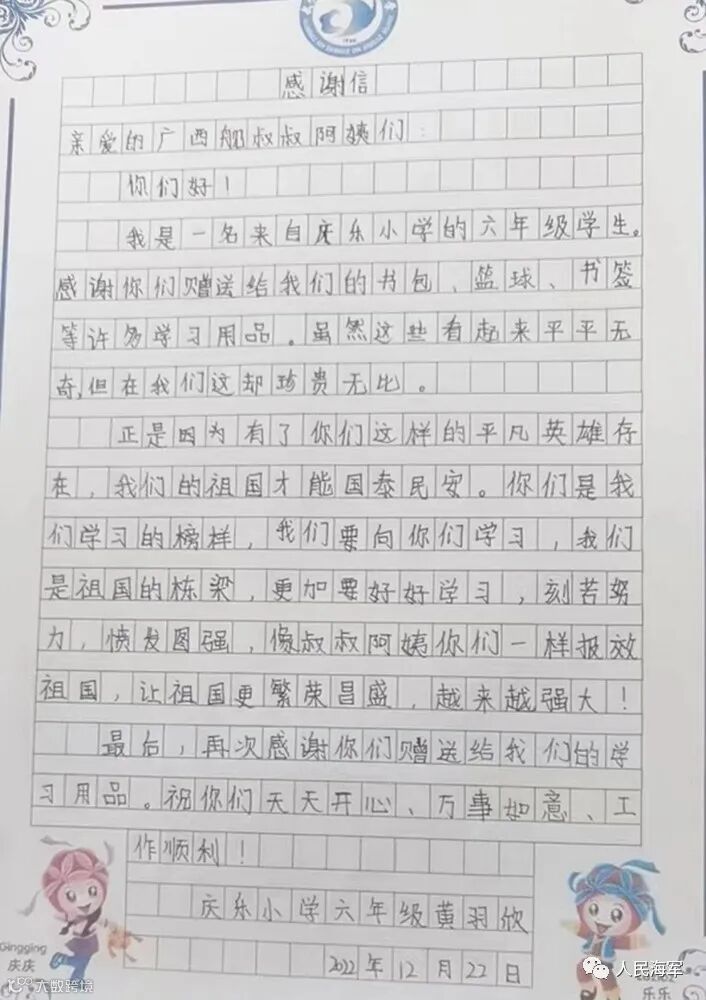 感谢信
亲爱的广西船叔叔阿姨们：
你们好！
我是一名来自庆乐小学的六年级学生。
感谢你们赠送给我们的书包、篮球、书签
等许多学习用品。虽然这些看起来平平无
奇,但在我们这却珍贵无比。
正是因为有了你们这样的平凡英雄存
在，我们的祖国才能国泰民安。你们是我
们学习的榜样，我们要向你们学习，我们
是祖国的栋梁，更加要好好学习，刻苦努
力，愤发图强，像叔叔阿姨你们一样报效
祖国，让祖国更繁荣昌盛，越来越强大！
最后，再次感谢你们赠送给我们的学
习用品。祝你们天天开心、万事如意、工
作顺利！
庆乐小学六年级黄羽欣
2022年12月22日
Qingqing
庆庆
乐乐
大数跨境
人民海军